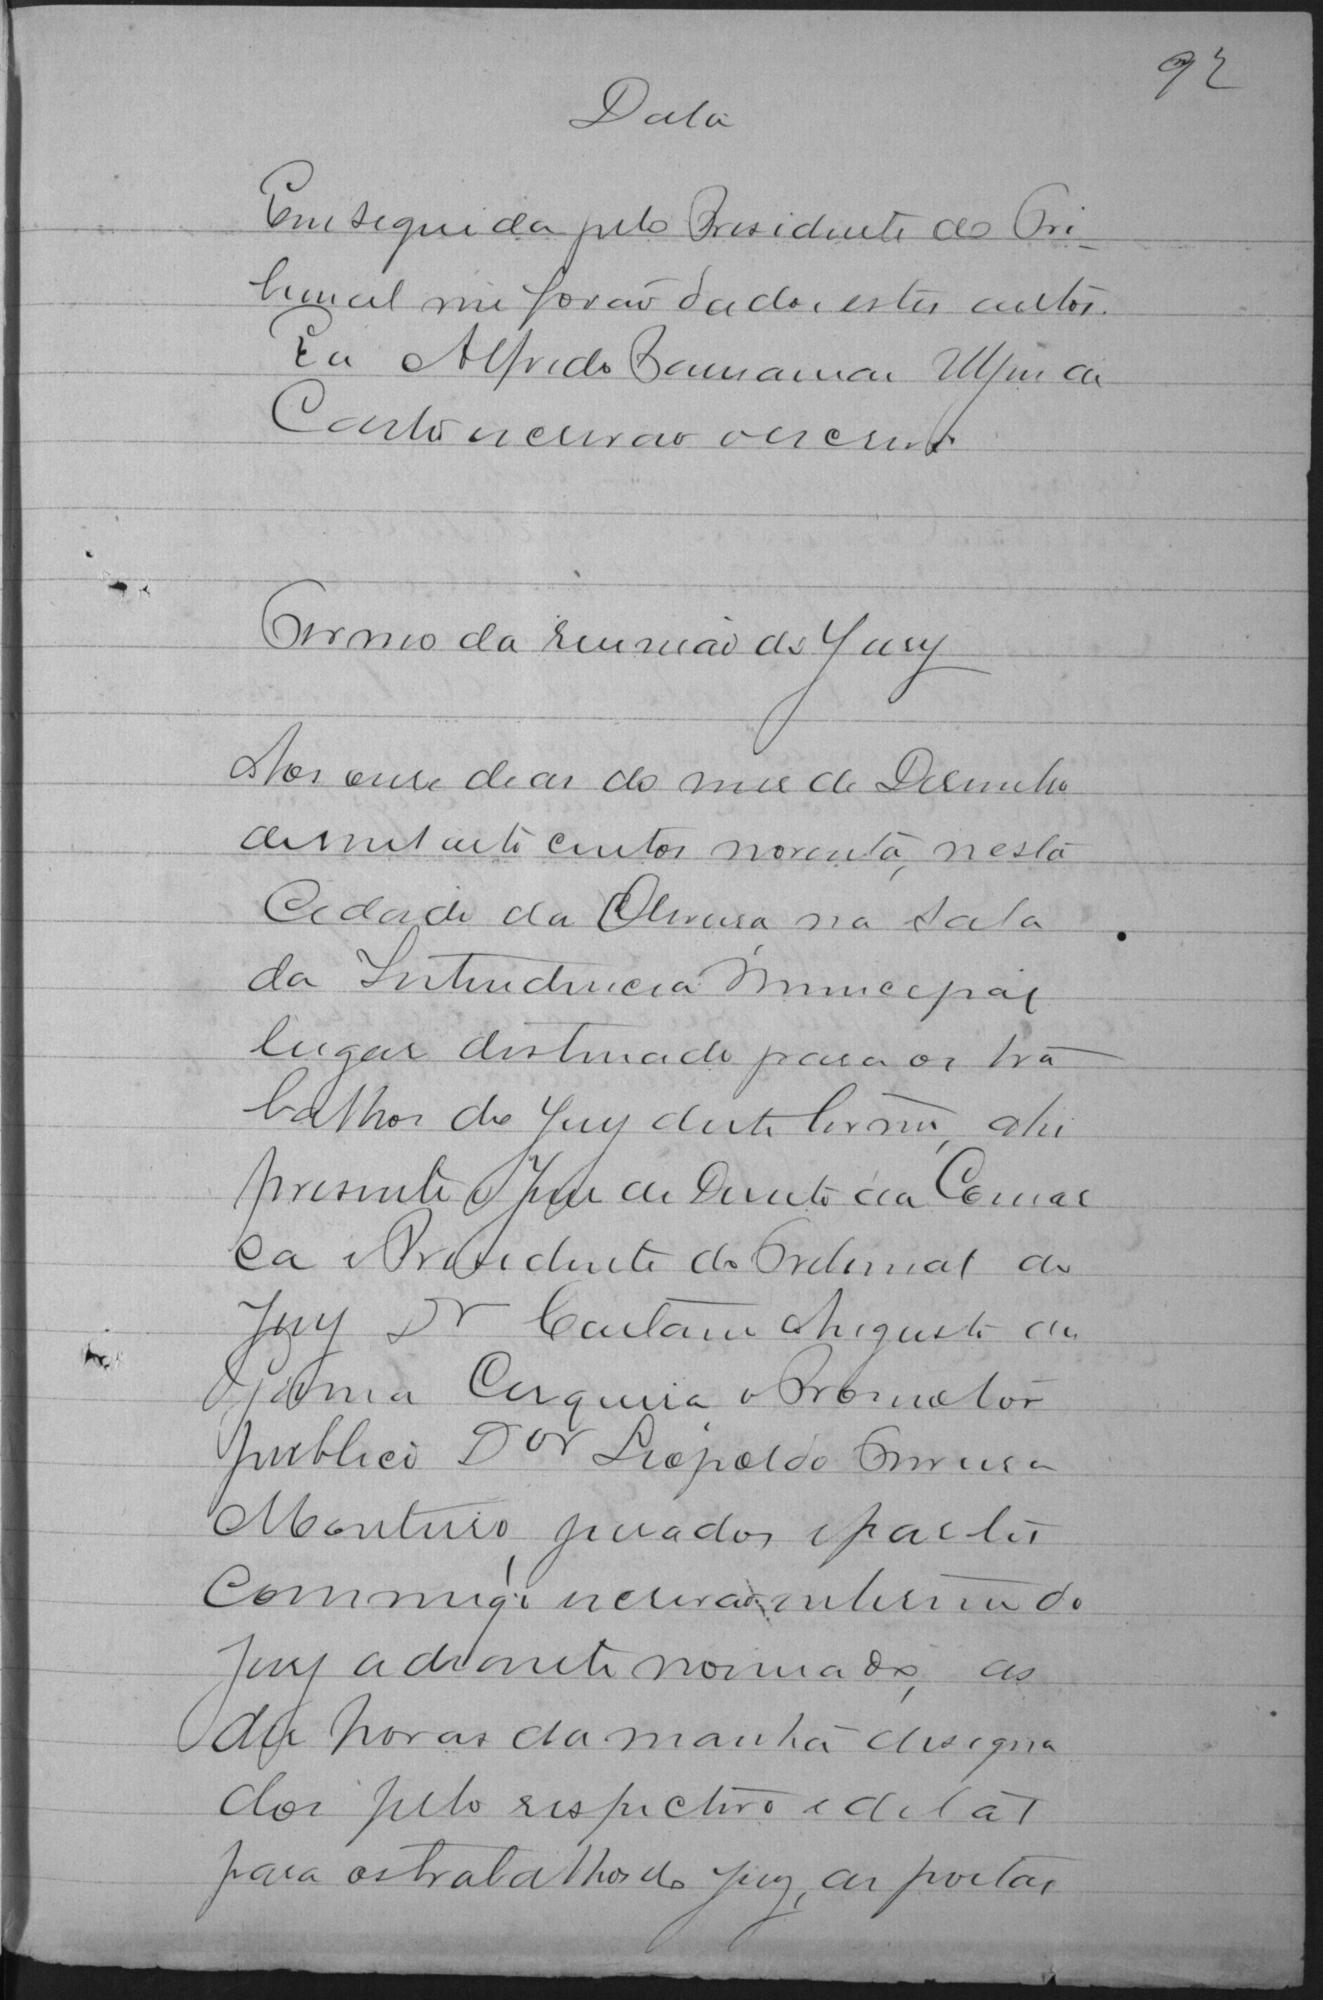 92
Data
Em seguida pelo Presidente do Tri-
bunal me forão dados estes autos.
Eu Alfredo
Castro escrivão o escrevi.
Termo da reunião do Jury
Aos onze dias do mez de Desembro
de mil oito centos noventa, nesta
Cidade da Oliveira na sala
da Intendencia Municipal
lugar destinado para os tra
balhos do Jury deste termo, ahi
presente o Juiz de Direito da Comar
ca e Presidente do Tribunal do
Jury Dr Caetano Augusto da
Gama Cerqueira o Promotor
publico Dor Leopoldo Ferreira
Monteiro, jurados e partes
commigo escrivão interino do
Jury adiante nomeado, as
dez horas da manhã designa
dos pelo respectivo edital
para os trabalhos do Jury, as portas